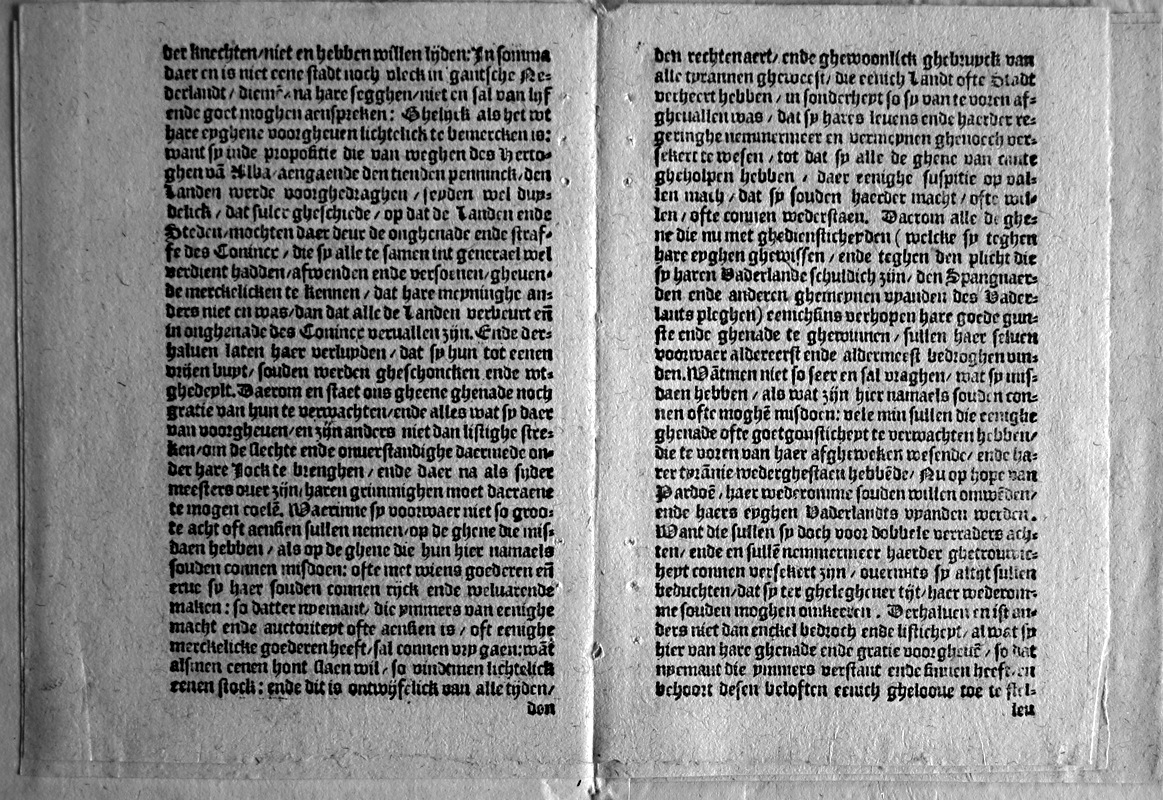 der knechten/niet en hebben willen lijden: In somma
daer en is niet eene stadt noch vleck in gantsche Ne-
derlandt/ diemẽ/ na hare segghen/niet en sal van lijf
ende goet moghen aenspreken: Ghelijck als het wt
hare eyghene voorgheuen lichtelick te bemercken is:
want sy inde propositie die van weghen des Herto-
ghen vã Alba/ aengaende den tienden penninck/ den
Landen werde voorghedraghen/ seyden wel duy-
delick/ dat sulcx gheschiede/ op dat de Landen ende
Steden/mochten daer deur de onghenade ende straf-
fe des Conincx/ die sy alle te samen int generael wel
verdient hadden/afwenden ende versoenen/gheuen-
de merckelicken te kennen/ dat hare meyninghe an-
ders niet en was/dan dat alle de Landen verbeurt eñ
in onghenade des Conincx veruallen zijn. Ende der-
haluen laten haer verluyden/ dat sy hun tot eenen
vrijen buyt/ souden werden gheschoncken ende wt-
ghedeylt. Daerom en staet ons gheene ghenade noch
gratie van hun te verwachten/ende alles wat sy daer
van voorgheuen/en zijn anders niet dan listighe stre-
ken/om de slechte ende onuerstandighe daermede on-
der hare Jock te brenghen/ ende daer na als sijder
meesters ouer zijn/ haren grimmighen moet daeraene
te mogen coelẽ. Waerinne sy voorwaer niet so groo-
te acht oft aensien sullen nemen/op de ghene die mis-
daen hebben/ als op de ghene die hun hier namaels
souden connen misdoen: ofte met wiens goederen eñ
erue sy haer souden connen rijck ende weluarende
maken: so datter nyemant/ die ymmers van eenighe
macht ende auctoriteyt ofte aensien is/ oft eenighe
merckelicke goederen heeft/sal connen vry gaen: wãt
alsmen eenen hont slaen wil/ so vindtmen lichtelick
eenen stock: ende dit is ontwijfelick van alle tijden/
den
den rechten aert/ ende ghewoonlick ghebruyck van
alle tyrannen gheweest/ die eenich Landt ofte Stadt
verheert hebben/ in sonderheyt so sy van te voren af-
gheuallen was/ dat sy hares leuens ende haerder re-
geringhe nemmermeer en vermeynen ghenoech ver-
sekert te wesen/ tot dat sy alle de ghene van cante
gheholpen hebben/ daer eenighe suspitie op val-
len mach/ dat sy souden haerder macht/ ofte wil-
len/ ofte connen wederstaen. Daerom alle de ghe-
ne die nu met ghediensticheyden (welcke sy teghen
hare eyghen ghewissen/ ende teghen den plicht die
sy haren Vaderlande schuldich zijn/ den Spangnaer-
den ende anderen ghemeynen vyanden des Vader-
lants pleghen) eenichsins verhopen hare goede gun-
ste ende ghenade te ghewinnen/ sullen haer seluen
voorwaer aldereerst ende aldermeest bedroghen vin-
den. Wãtmen niet so seer en sal vraghen/ wat sy mis-
daen hebben/ als wat zijn hier namaels souden con-
nen ofte moghẽ misdoen: vele min sullen die eenighe
ghenade ofte goetgonsticheyt te verwachten hebben/
die te voren van haer afgheweken wesende/ ende ha-
rer tyrãnie wederghestaen hebbẽde/ Nu op hope van
Pardoẽ/ haer wederomme souden willen omwẽden/
ende haers eyghen Vaderlandts vyanden werden.
Want die sullen sy doch voor dobbele verraders ach-
ten/ ende en sullẽ nemmermeer haerder ghetrouwic-
heyt connen versekert zijn/ ouermits sy altijt sullen
beduchten/dat sy ter gheleghener tijt/ haer wederom-
me souden moghen omkeeren. Derhaluen en ist an-
ders niet dan enckel bedroch ende listicheyt/ al wat sy
hier van hare ghenade ende gratie voorgheuẽ/ so dat
nyemant die ymmers verstant ende sinnen heeft/ en
behoort desen beloften eenich ghelooue toe te stel-
len